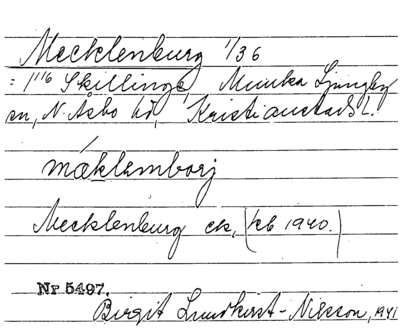 Mecklenburg 1/36
= 1/16 Skillinge Munka Ljungby
sn, N. Åsbo hd, Kristianstads l.
mäklamborj
Mecklenburg ek, (kb 1940.)
Nr 5497.
Birgit Lundkvist-Nilsson, 1941